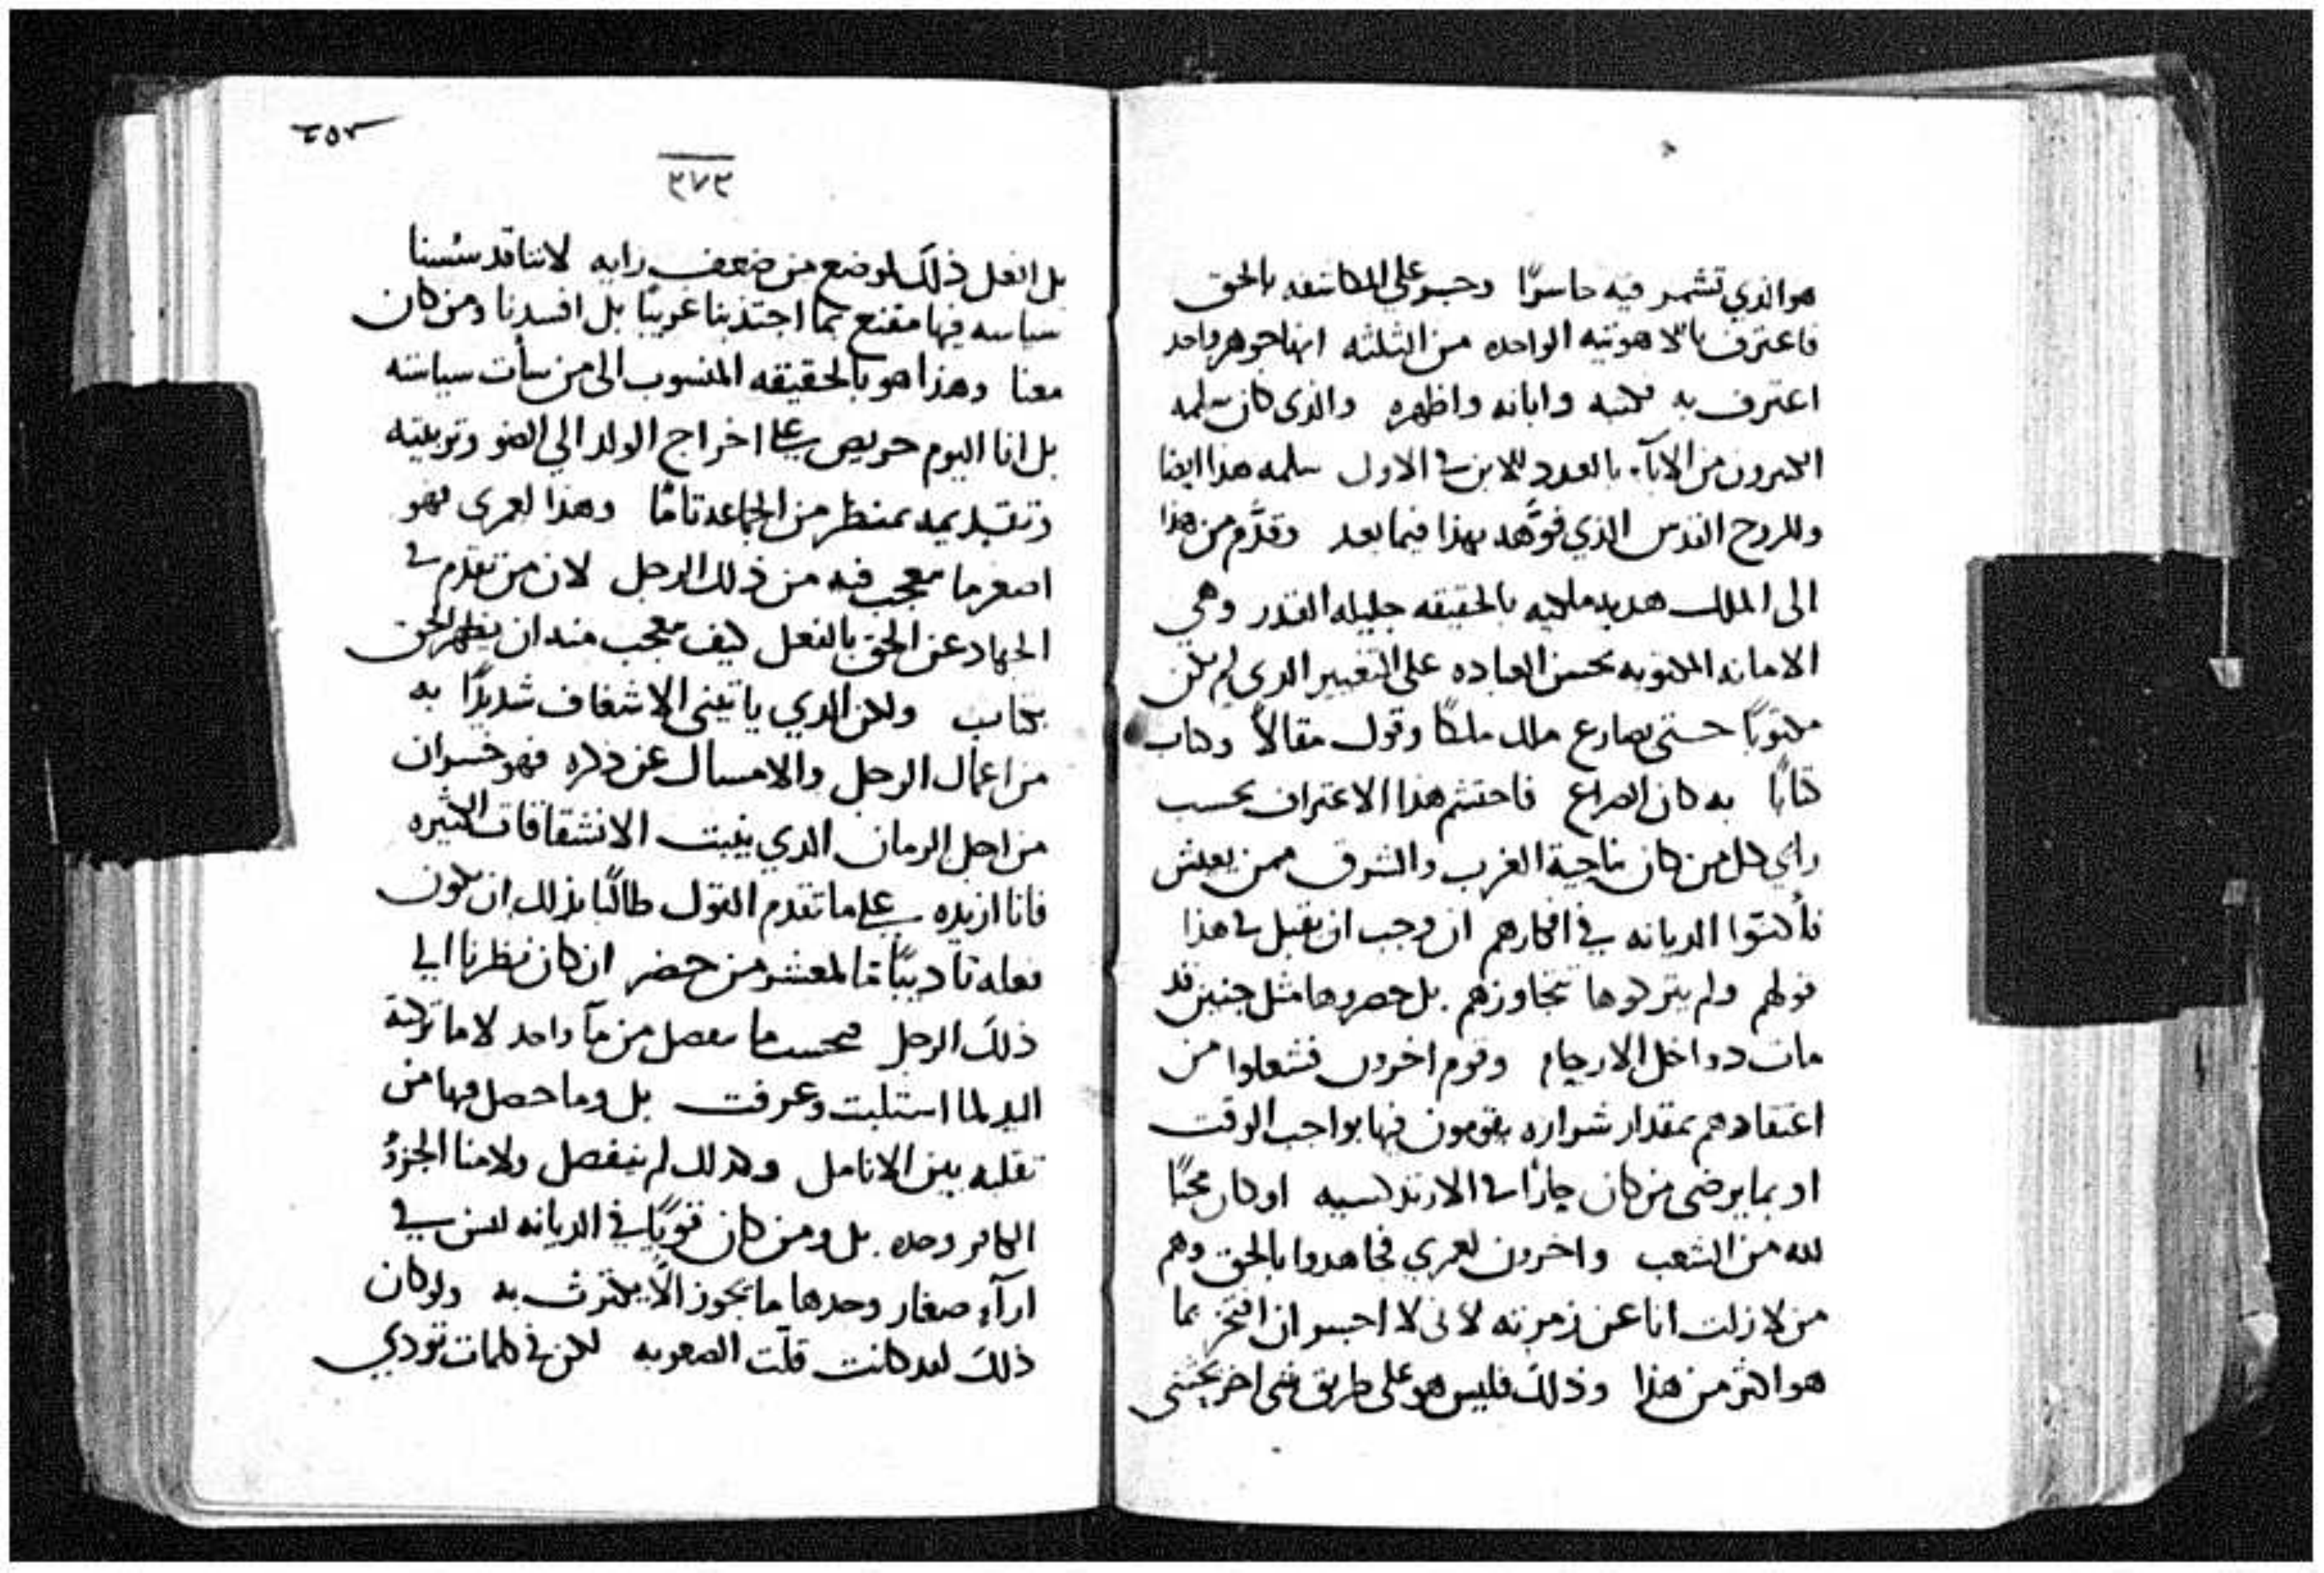 هو الذي تشمر فيه حاسرًا وجسر على المكاشفه بالحق
فاعترف باللاهوتيه الواحده من الثلثه انها جوهر واحد
اعترف به فكتبه وابانه واظهره والذى كان سلمه
الكثيرون من الابآء بالعدد للابن فى الاول سلمه هذا ايضا
وللروح القدس الذي فوَّهه بهذا فيما بعد وقدَّم من هذا
الى الملك هديه ملكيه بالحقيقه جليله القدر وهي
الامانه المكتوبه بحسن العباده على التغيير الدى لم يكن
مكتوبًا حتى يصارع ملك ملكًا وقول مقالاً وكتاب
كتابًا به كان الصراع فاحتشم هذا الاعتراف بحسب
راي كل من كان بناحية الغرب والشرق ممن يعيش
فأكنوا الديانه في افكارهم ان وجب ان نقبل فى هذا
قولهم ولم يتركوها تتجاوزهم بل حصروها مثل جنين قد
مات دواخل الارحام وقوم اخرون فشعلوا من
اعتقادهم بمقدار شراره يقومون فيها بواجب الوقت
او بما يرضى من كان حارًا فى الارتدكسيه او كان محبًا
لله من الشعب واخرون لعمري فجاهدوا بالحق وهم
من لا زلت انا عن زمرته لأنى لا اجسر ان افتخر بما
هو اكثر من هذا وذلك فليس هو على طريق شى اخر يختشى
٢٥٣
٣٧٣
بل افعل ذلك لوضع من ضعف رايه لاننا قد سُسنا
سياسه فيها مقنع فما اجتذبنا غريبًا بل افسدنا ومن كان
معنا وهذا هو بالحقيقه المنسوب الى من سأت سياسته
بل انا اليوم حريص على اخراج الولد الي الضو وتربيته
وتقديمه بمنظر من الجماعه تامًا وهدا لعمرى فهو
اصغر ما تعجب فيه من ذلك الرجل لان من تقدم فى
الجهاد عن الحق بالفعل كيف تعجب منه ان يظهر الحق
بكتاب ولكن الدي ياتيني الاشغاف شديدًا به
من اعمال الرجل والامساك عن ذكره فهو خسران
من اجل الزمان الدي ينبت الانشقاقات الكثيره
فانا ازيده على ما تقدم القول طالبًا بذلك ان يكون
فعله تاديبًا ما لمعشر من حضر ان كان نظرنا الي
ذلك الرجل فحسب ما يفصل من مآ واحد لا ما تركته
اليد لما استلبت وغرفت بل وما حصل فيها من
تفلته بين الانامل وكدلك لم ينفصل ولا منا الجزءُ
الكافر وحده بل ومن كان قويًا في الديانه ليس في
ارآءٍ صغار وحدها ما يجوز الاّ يكترث به ولو كان
ذلك لقد كانت قلّت الصعوبه لكن في كلمات تودي